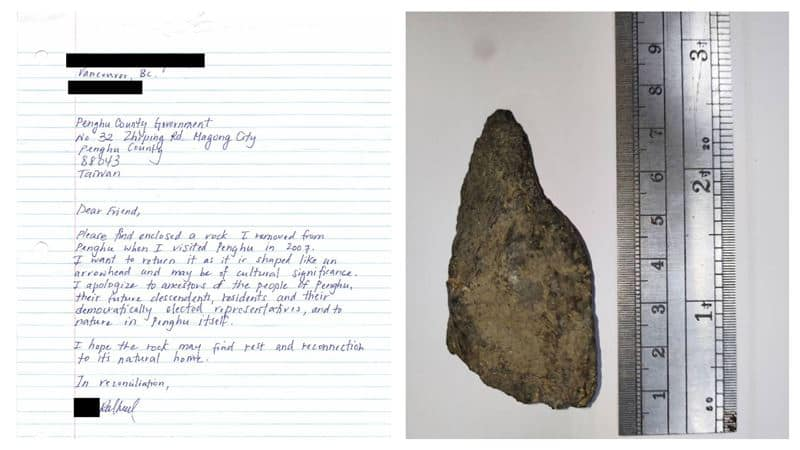 Vancouver, BC.
Penghu County Government
No 32 Zhiping Rd. Magong City
Penghu County
88043
Taiwan
Dear Friend,
Please find enclosed a rock I removed from
Penghu when I visited Penghu in 2007.
I want to return it as it is shaped like an
arrowhead and may be of cultural significance.
I apologize to ancestors of the people of Penghu,
their future descendents, residents and their
democratically elected representatives, and to
nature in Penghu itself.
I hope the rock may find rest and reconnection
to its natural home.
In reconciliation,
9
8
7
6
5
4
3
2
1
3
20
2
1
50